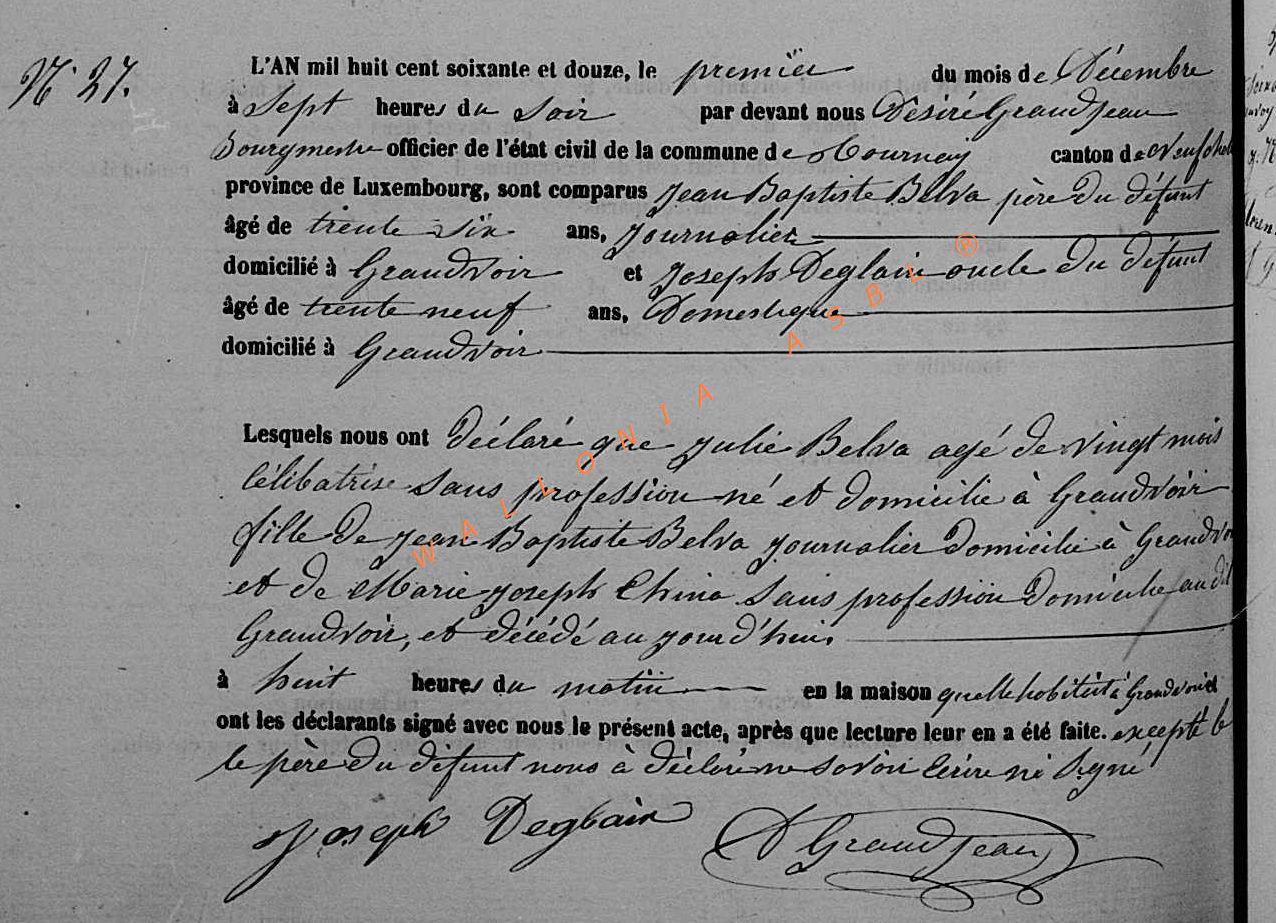 N° 27.
L'AN mil huit cent soixante et douze, le premier du mois de Décembre
à Sept heures du Soir par devant nous Désiré Grandjean
Bourgmestre officier de l'état civil de la commune de Tournay canton de Neufchat
province de Luxembourg, sont comparus Jean Baptiste Belva père du défunt
âgé de trente Six ans, Journalier
domicilié à Grandvoir et Joseph Deglain oncle du défunt
âgé de trente neuf ans, Domestique
domicilié à Grandvoir
Lesquels nous ont déclaré que Julie Belva agé de vingt mois
Célibatrise Sans profession né et domicilié à Grandvoir
fille de Jean Baptiste Belva Journalier Domicilié à Grandvoi
et de Marie Joseph China Sans profession Domicilie au dit
Grandvoir, et décédé au jourd'hui.
à huit heures du matin en la maison quelle habitait à Grandvoir et
ont les déclarants signé avec nous le présent acte, après que lecture leur en a été faite. excepté le
le père du défunt nous à déclaré ne Savoir Ecrire ni Signé
Joseph Deglain D Grandjean
WALLONIA ASBL ®